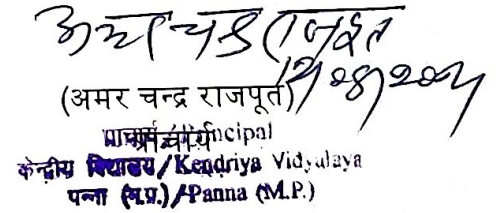 अमर चन्द्र राजपूत
(अमर चन्द्र राजपूत)
प्राचार्य
प्राचार्य/Principal
केन्द्रीय विद्यालय/Kendriya Vidyalaya
पन्ना (म.प्र.)/Panna (M.P.)